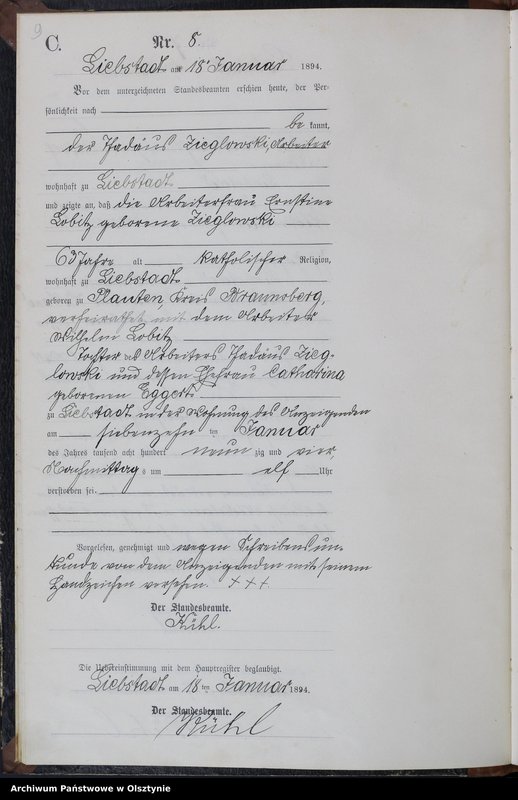 9
C.
Nr. 8.
Liebstadt am 18ten Januar 1894.
Vor dem unterzeichneten Standesbeamten erschien heute, der Per-
sönlichkeit nach
be kannt,
der Thadäus Zieglowski, Arbeiter
wohnhaft zu Liebstadt
und zeigte an, daß die Arbeiterfrau Ernstine
Lobitz geborene Zieglowski
63 Jahre alt katholischer Religion,
wohnhaft zu Liebstadt
geboren zu Plauten, Kreis Braunsberg,
verheirathet mit dem Arbeiter
Wilhelm Lobitz
Tochter des Arbeiters Thadäus Zieg-
lowski und dessen Ehefrau Catharina
geborenen Eggert
zu Liebstadt in der Wohnung des Anzeigenden
am siebenzehn ten Januar
des Jahres tausend acht hundert neun zig und vier
Nachmittag s um elf Uhr
verstorben sei.
Vorgelesen, genehmigt und wegen Schreibensun-
kunde von dem Anzeigenden mit seinem
Handzeichen versehen. + + +
Der Standesbeamte.
Kühl.
Die Uebereinstimmung mit dem Hauptregister beglaubigt.
Liebstadt am 18 ten Januar 1894.
Der Standesbeamte.
Kühl
Archiwum Państwowe w Olsztynie